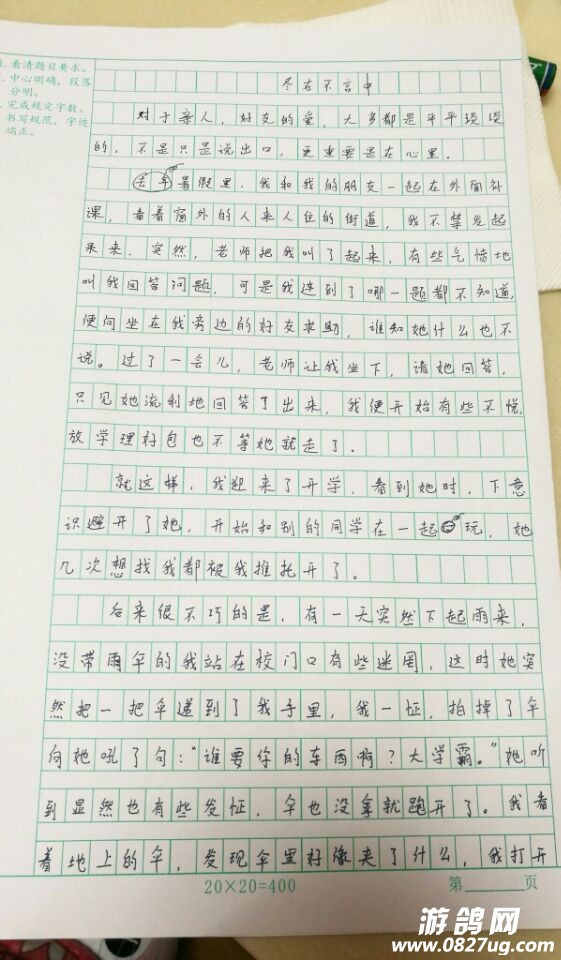 1. 看清题目要求。
2. 中心明确，段落
分明。
3. 完成规定字数。
4. 书写规范，字迹
端正。
尽在不言中
对于亲人，好友的爱，大多都是平平琰琰
的，不是只是说出口，更重要是在心里。
去年暑假里，我和我的朋友一起在外面补
课，看着窗外的人来人往的街道，我不禁发起
呆来，突然，老师把我叫了起来，有些气愤地
叫我回答问题，可是我连到了哪一题都不知道，
便向坐在我旁边的好友求助，谁知她什么也不
说。过了一会儿，老师让我坐下，请她回答，
只见她流利地回答了出来，我便开始有些不悦，
放学理好包也不等她就走了。
就这样，我迎来了开学，看到她时，下意
识避开了她，开始和别的同学在一起玩，她
几次想找我都被我推托开了。
后来很不巧的是，有一天突然下起雨来，
没带雨伞的我站在校门口有些迷罔，这时她突
然把一把伞递到了我手里，我一怔，拍掉了伞
向她吼了句：“谁要你的东西啊？大学霸。”她听
到显然也有些发怔，伞也没拿就跑开了。我看
着地上的伞，发现伞里好像夹了什么，我打开
20×20=400
第 页
游鸽网
www.0827ug.com